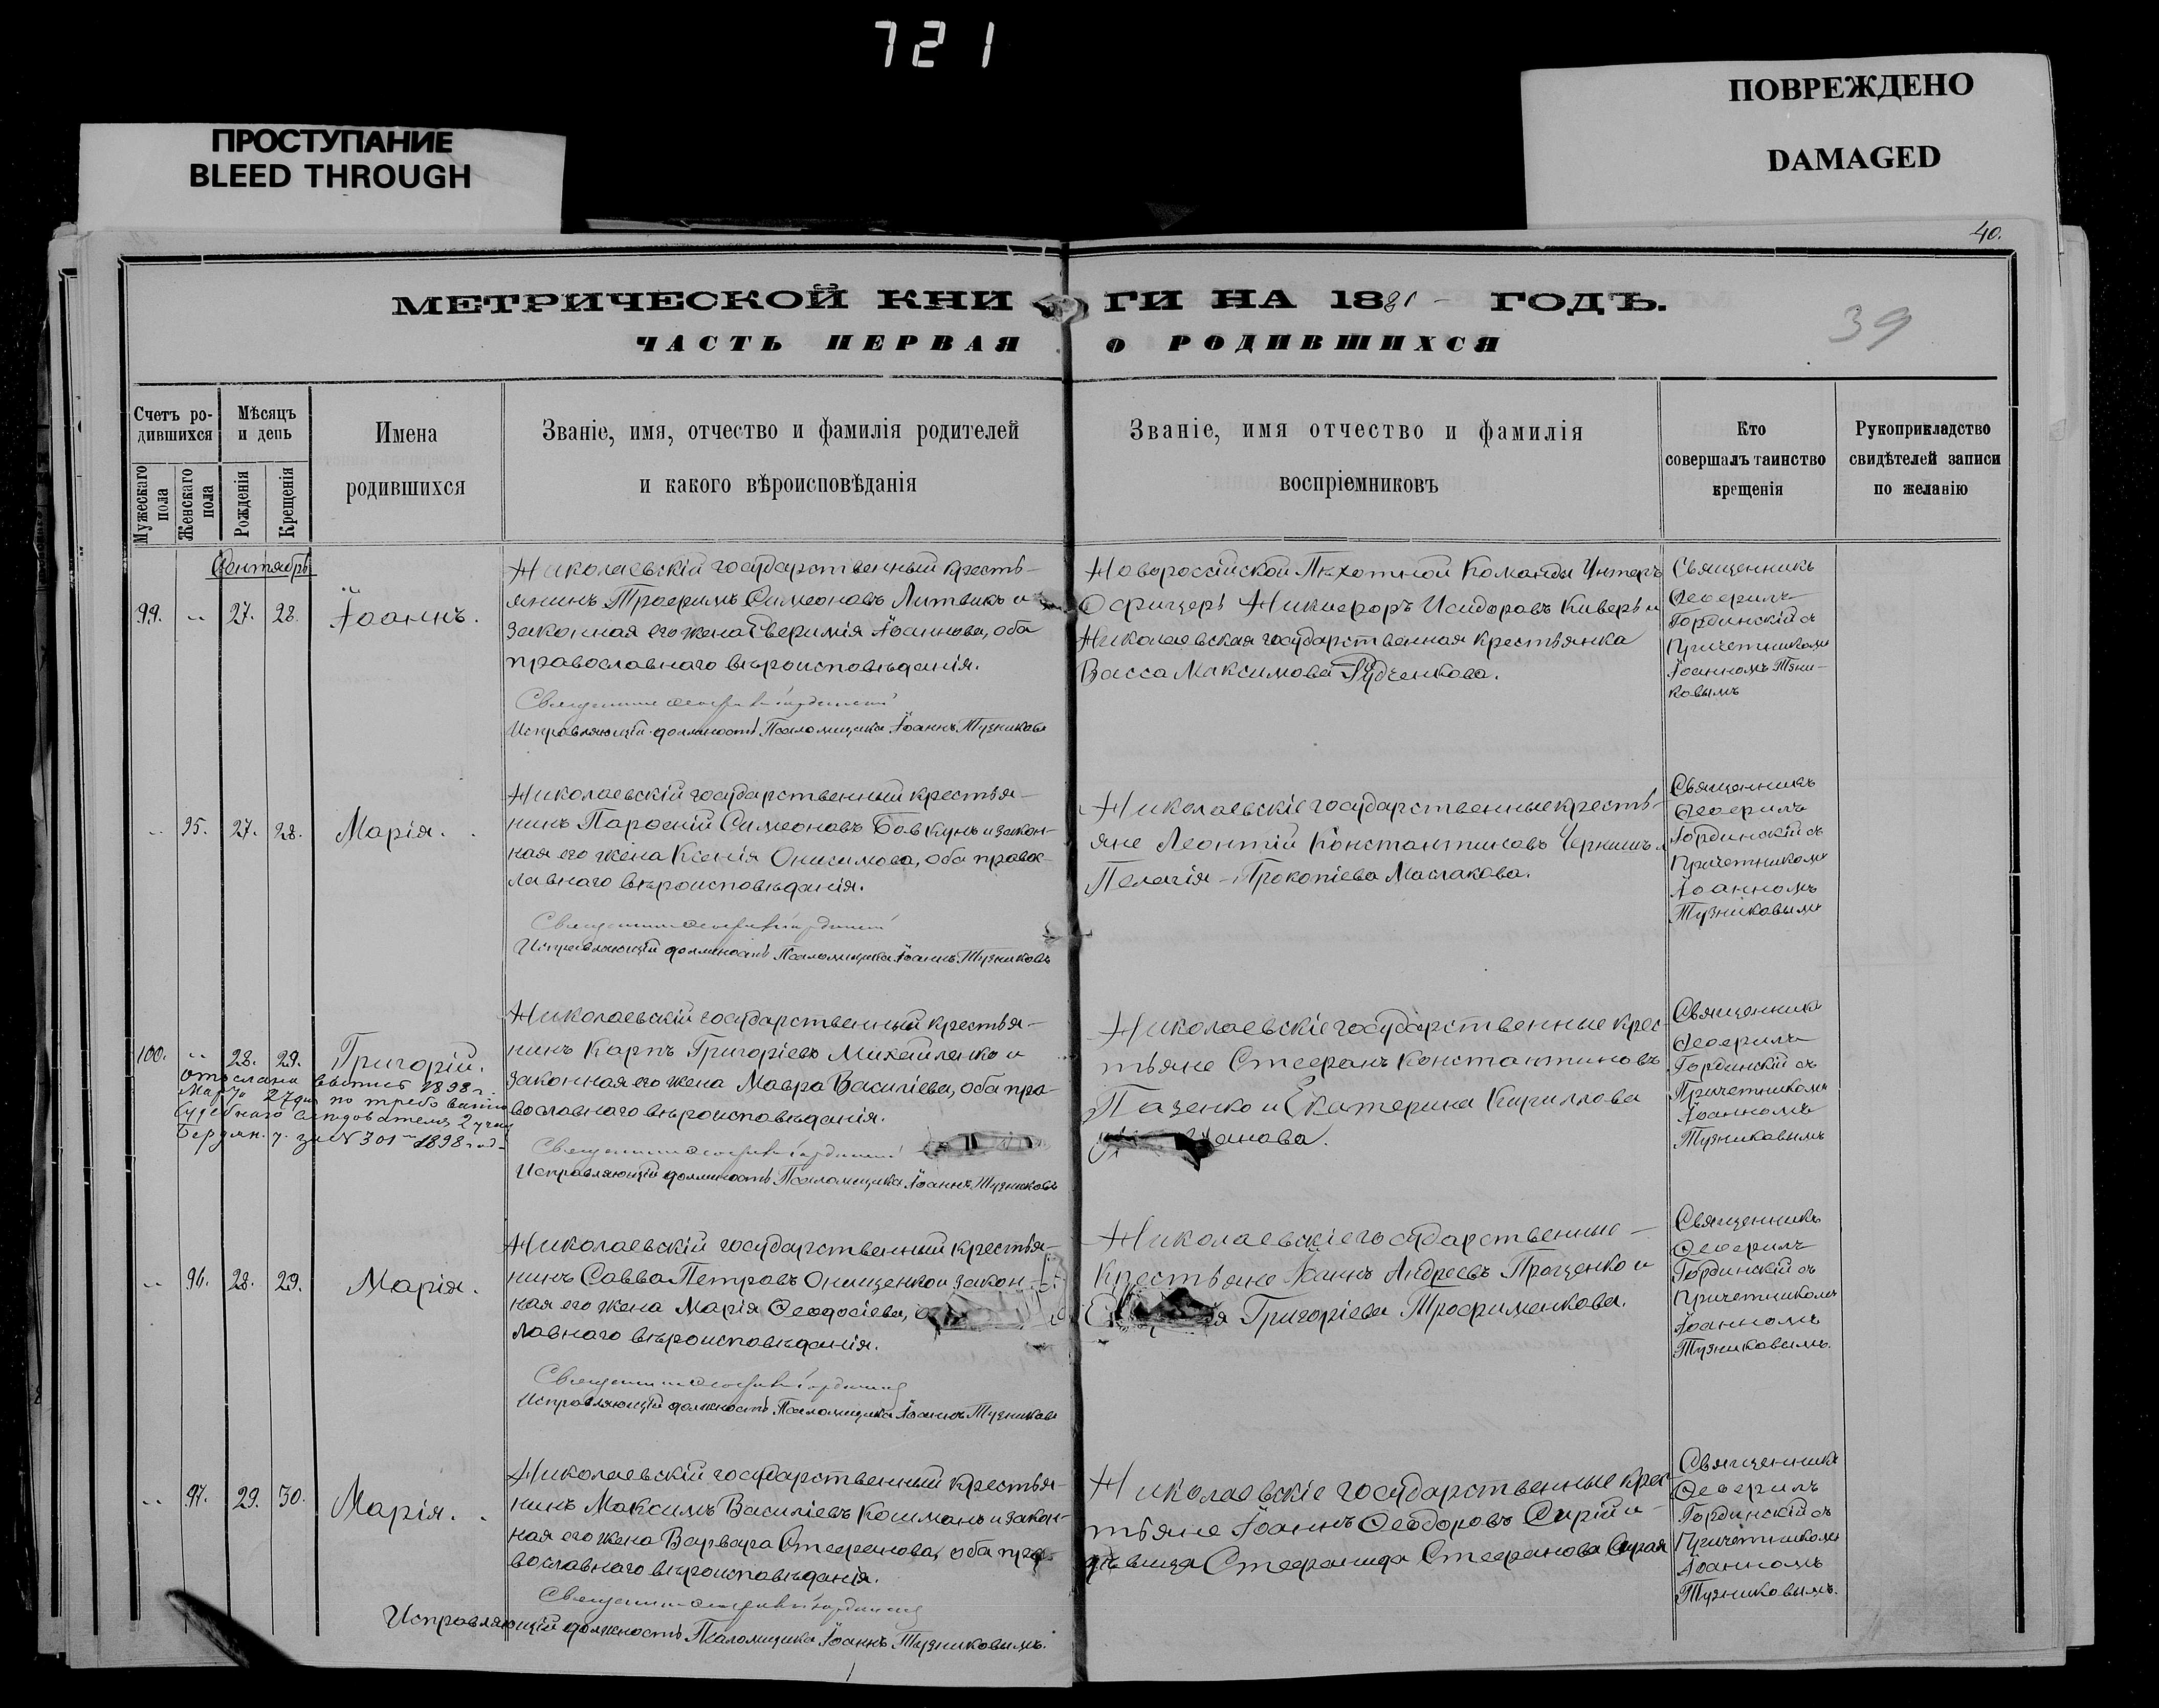 721
ПРОСТУПАНИЕ
BLEED THROUGH
ПОВРЕЖДЕНО
DAMAGED
40.
39
МЕТРИЧЕСКОЙ КНИГИ НА 1881 ГОДЪ.
ЧАСТЬ ПЕРВАЯ О РОДИВШИХСЯ
Счетъ родившихся
Мужескаго пола
Женскаго пола
Мѣсяцъ и день
Рожденія
Крещенія
Имена
родившихся
Званіе, имя, отчество и фамилія родителей
и какого вѣроисповѣданія
Званіе, имя отчество и фамилія
воспріемниковъ
Кто
совершалъ таинство
крещенія
Рукоприкладство
свидѣтелей записи
по желанію
Сентябрь
99. „ 27. 28. Іоаннъ.
Николаевскій государственный кресть-
янинъ Трофимъ Симеоновъ Литвикъ и
законная его жена Евфимія Іоаннова, оба
православнаго вѣроисповѣданія.
Священникъ Ѳеофилъ Гординскій
Исправляющій должность Псаломщика Іоаннъ Тузниковъ
Новороссійской Пѣхотной Команды Унтеръ
Офицеръ Никифоръ Исидоровъ Киверъ и
Николаевская государственная крестьянка
Васса Максимова Рудченкова.
Священникъ
Ѳеофилъ
Гординскій съ
Причетникомъ
Іоанномъ Тузни-
ковымъ
„ 95. 27. 28. Марія.
Николаевскій государственный крестья-
нинъ Парфеній Симеоновъ Бовкунъ и закон-
ная его жена Ксенія Онисимова, оба правос-
лавнаго вѣроисповѣданія.
Священникъ Ѳеофилъ Гординскій
Исправляющій должность Псаломщика Іоаннъ Тузниковъ
Николаевскіе государственные кресть-
яне Леонтій Константиновъ Черкишъ и
Пелагія Прокопіева Маслакова.
Священникъ
Ѳеофилъ
Гординскій съ
Причетникомъ
Іоанномъ
Тузниковымъ
100. „ 28. 29. Григорій.
отослана выпись 1898 г.
Марта 27 дня по требованію
Судебнаго слѣдователя 2 уч.
Бердян. у. за № 301 1898 год.
Николаевскій государственный крестья-
нинъ Карпъ Григоріевъ Михайленко и
законная его жена Мавра Василіева, оба пра-
вославнаго вѣроисповѣданія.
Священникъ Ѳеофилъ Гординскій
Исправляющій должность Псаломщика Іоаннъ Тузниковъ
Николаевскіе государственные крес-
тьяне Стефанъ Константиновъ
Пазенко и Екатерина Кириллова
Священникъ
Ѳеофилъ
Гординскій съ
Причетникомъ
Іоанномъ
Тузниковымъ
„ 96. 28. 29. Марія.
Николаевскій государственный крестья-
нинъ Савва Петровъ Онищенко и закон-
ная его жена Марія Ѳеодосіева,
лавнаго вѣроисповѣданія.
Священникъ Ѳеофилъ Гординскій
Исправляющій должность Псаломщика Іоаннъ Тузниковъ
Николаевскіе государственные
крестьяне Іоаннъ Андреевъ Прощенко и
Григоріева Трофименкова.
Священникъ
Ѳеофилъ
Гординскій съ
Причетникомъ
Іоанномъ
Тузниковымъ.
„ 97. 29. 30. Марія.
Николаевскій государственный крестья-
нинъ Максимъ Василіевъ Кошманъ и закон-
ная его жена Варвара Стефанова, оба пра-
вославнаго вѣроисповѣданія.
Священникъ Ѳеофилъ Гординскій
Исправляющій должность Псаломщика Іоаннъ Тузниковымъ.
Николаевскіе государственные крес-
тьяне Іоаннъ Ѳеодоровъ Сирій и
дѣвица Стефанида Стефанова Сирая
Священникъ
Ѳеофилъ
Гординскій съ
Причетникомъ
Іоанномъ
Тузниковымъ.